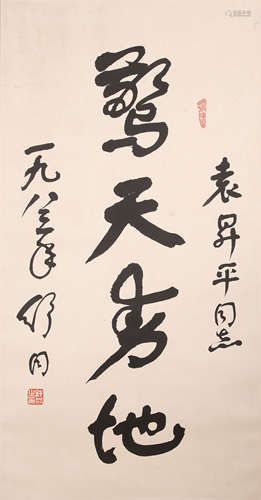 袁昇平同志
驚天動地
一九八三年 舒同